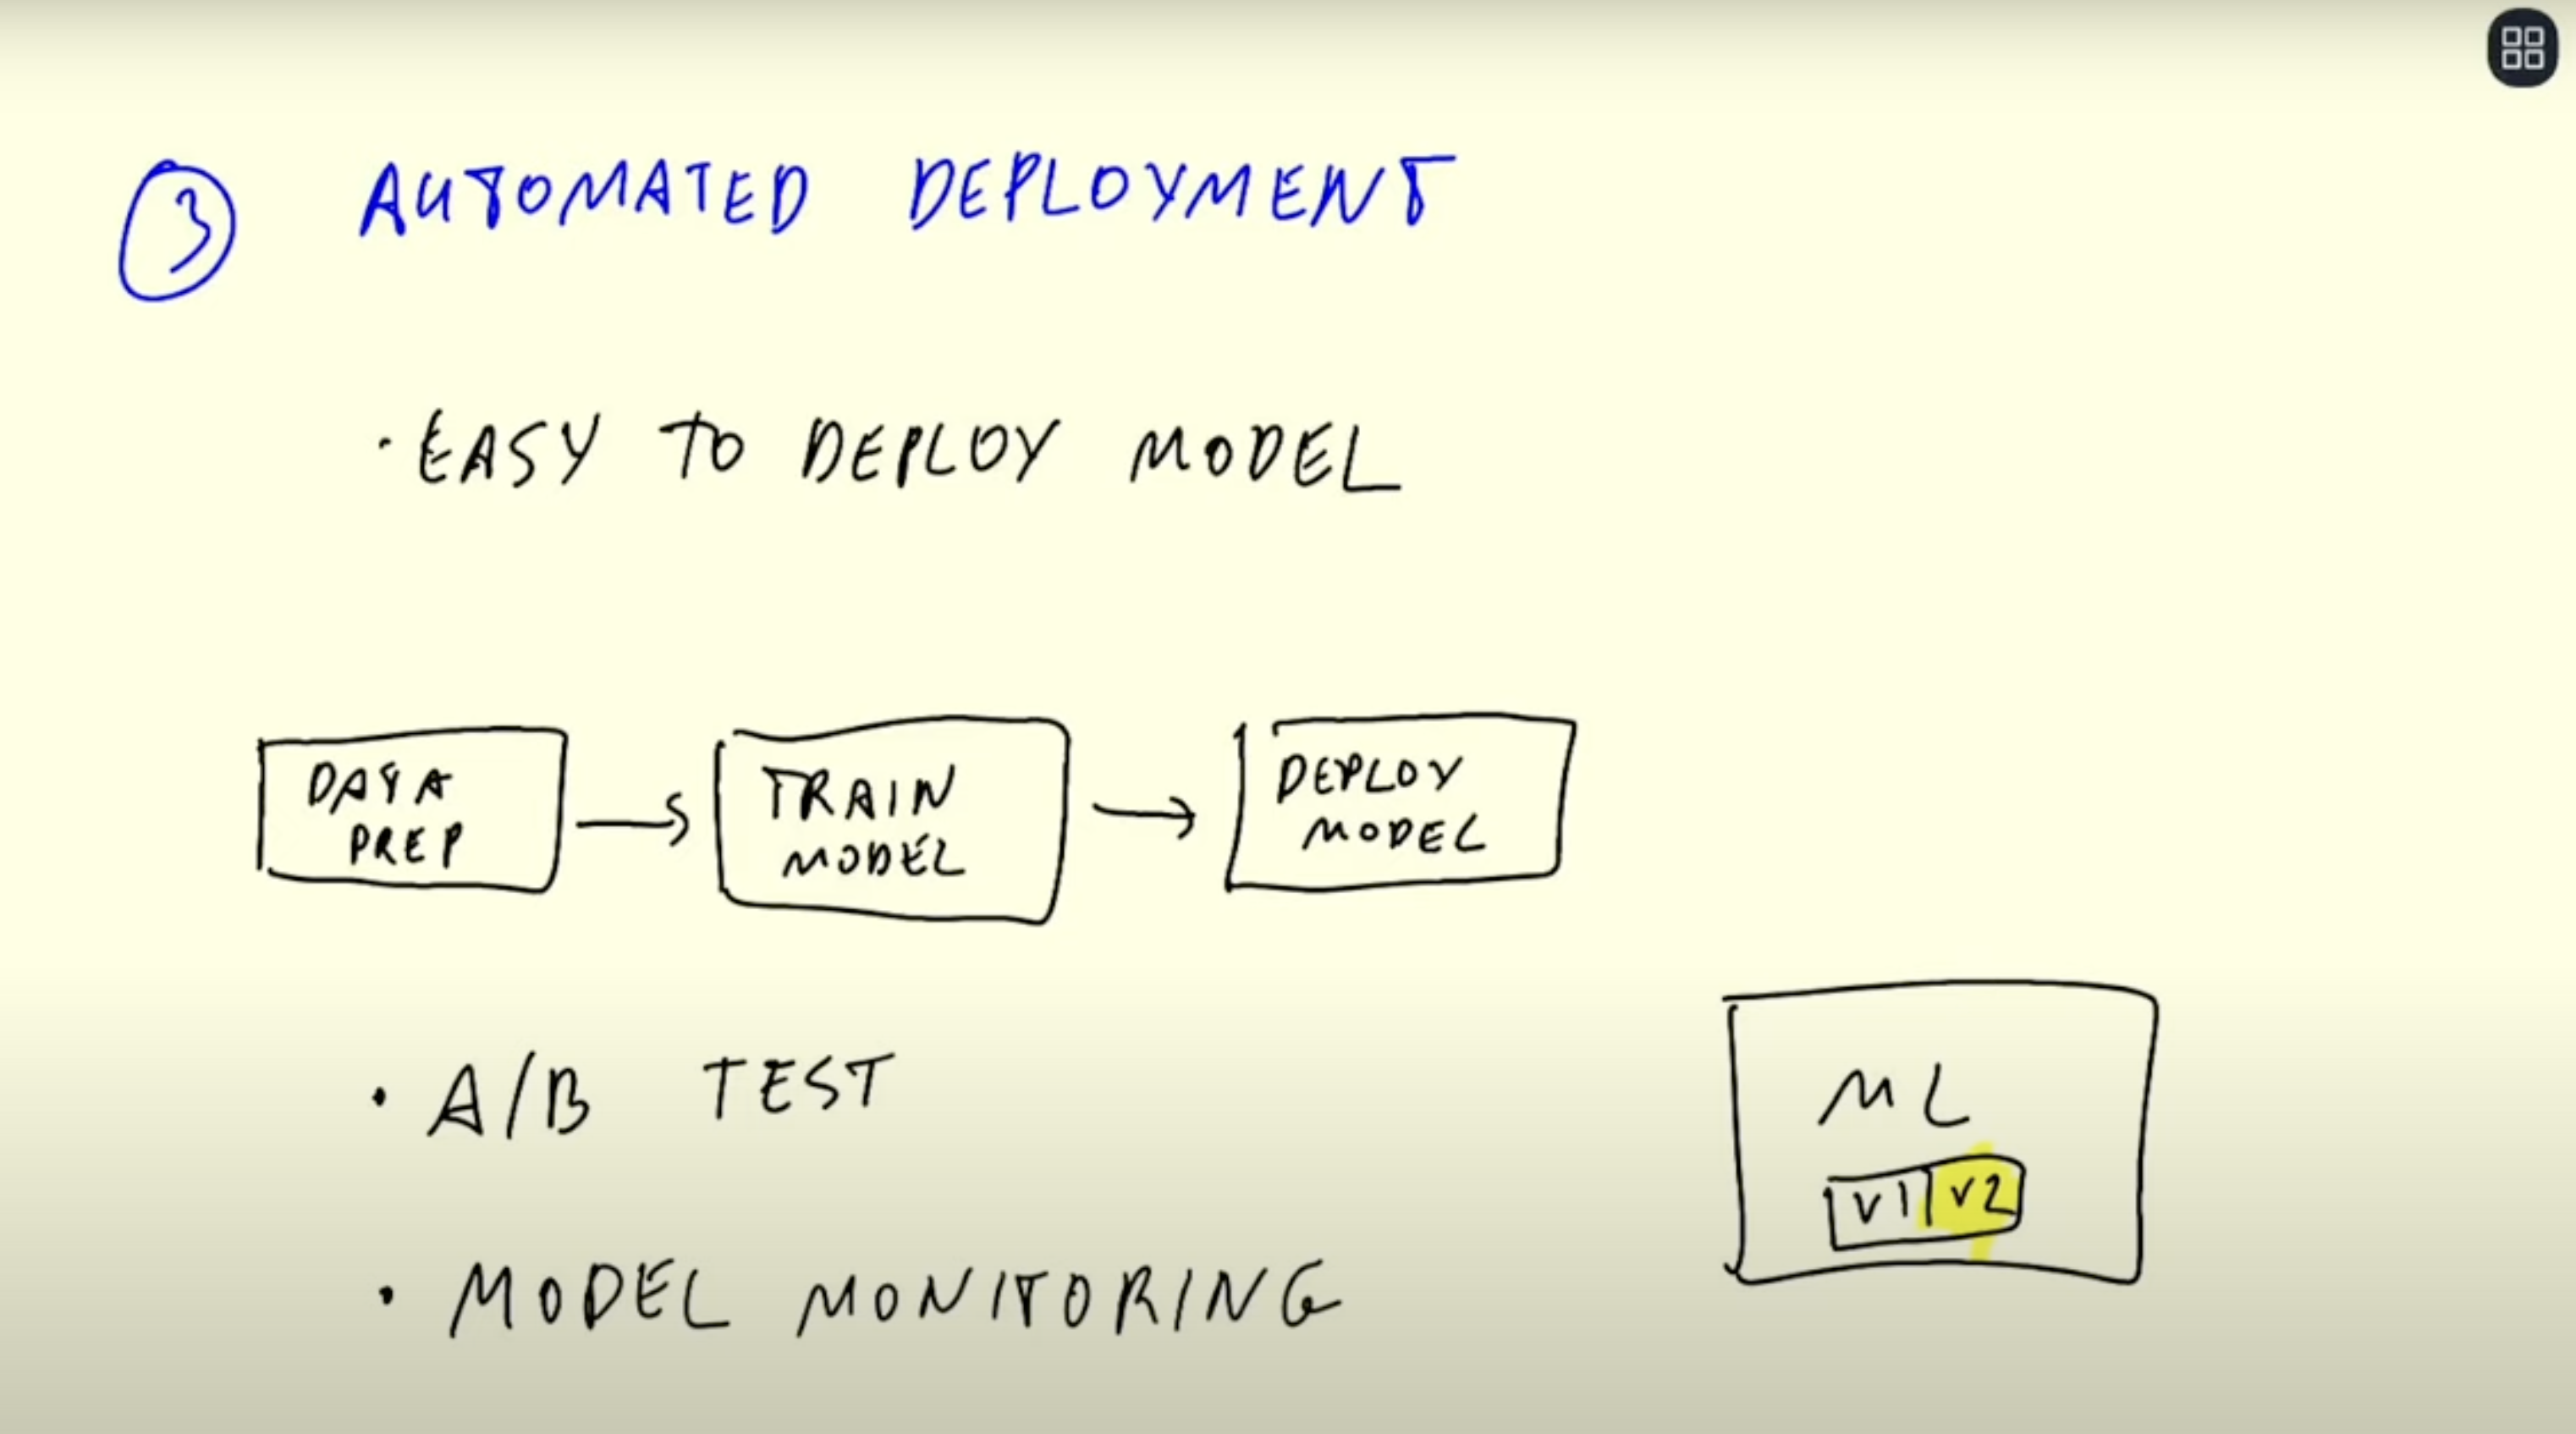 3 AUTOMATED DEPLOYMENT
· EASY TO DEPLOY MODEL
DATA
PREP
TRAIN
MODEL
DEPLOY
MODEL
· A/B TEST
· MODEL MONITORING
ML
V1 V2